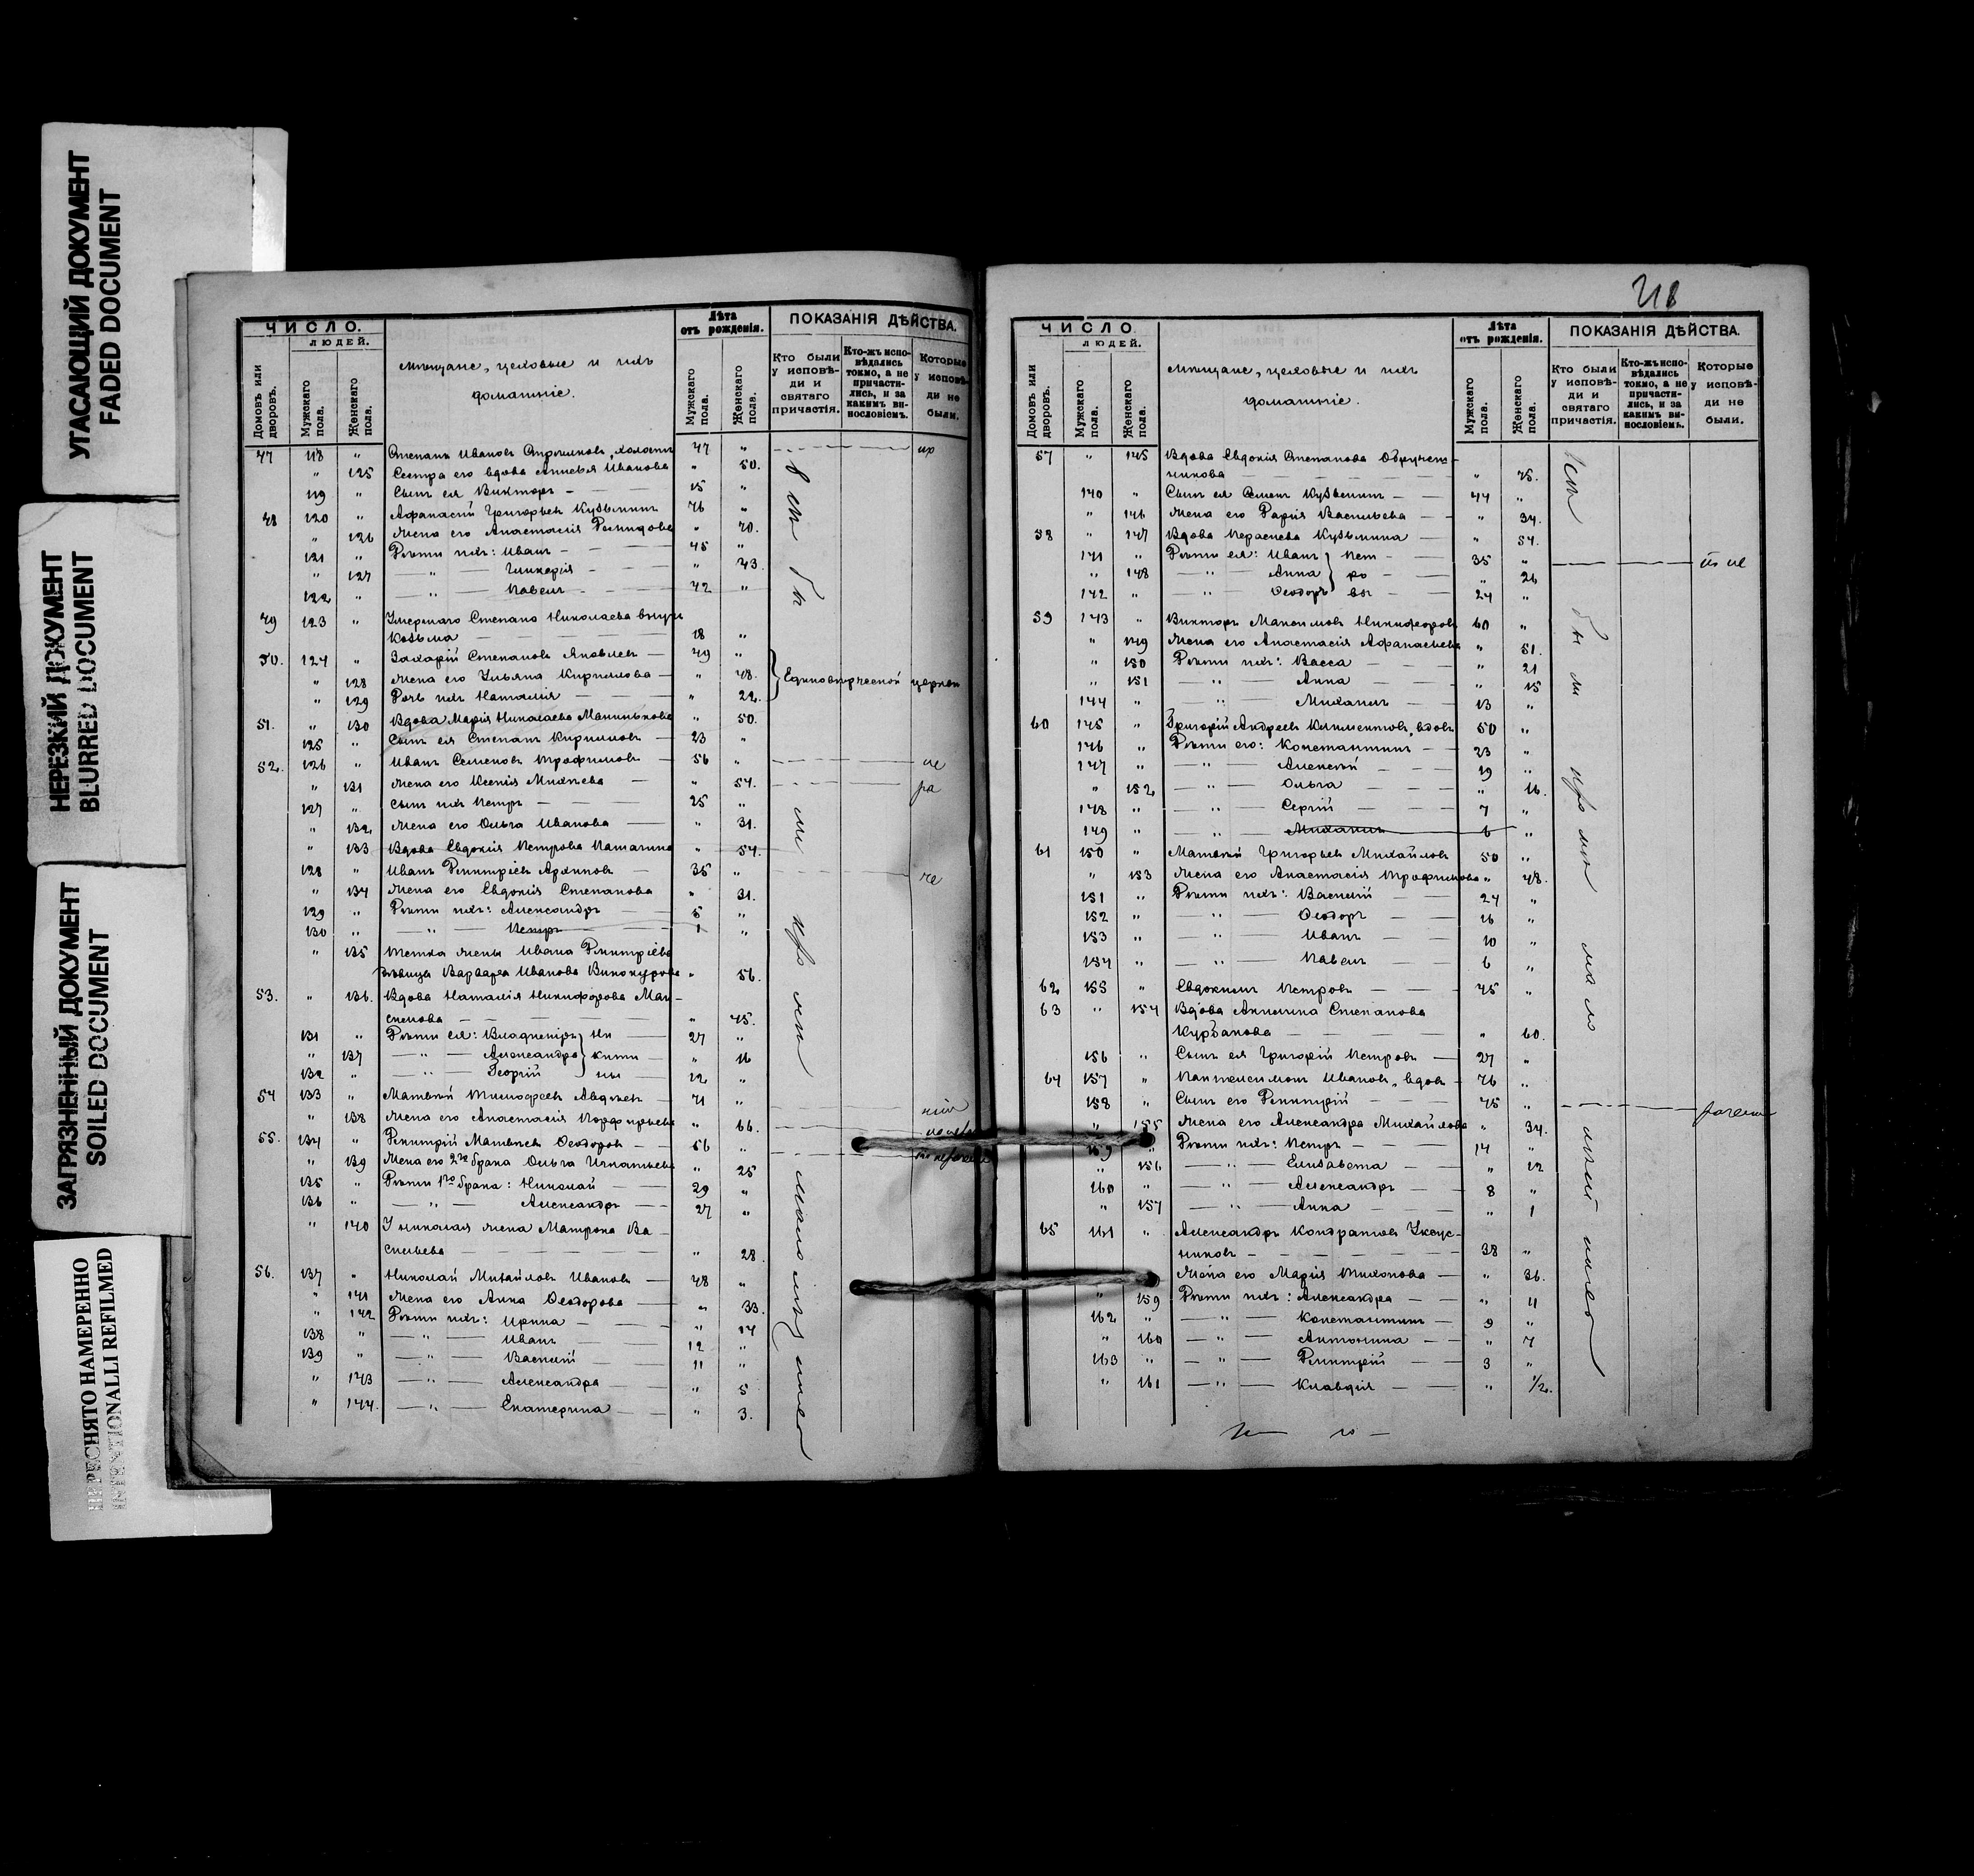 УГАСАЮЩИЙ ДОКУМЕНТ
FADED DOCUMENT
НЕРЕЗКИЙ ДОКУМЕНТ
BLURRED DOCUMENT
ЗАГРЯЗНЕННЫЙ ДОКУМЕНТ
SOILED DOCUMENT
ПЕРЕСНЯТО НАМЕРЕННО
INTENTIONALLI REFILMED
ЧИСЛО.
ЛЮДЕЙ.
Домовъ или дворовъ.
Мужскаго пола.
Женскаго пола.
Мѣщане, цеховые и ихъ
домашніе.
Лѣта
отъ рожденія.
Мужскаго пола.
Женскаго пола.
ПОКАЗАНІЯ ДѢЙСТВА.
Кто были у исповѣди и святаго причастія.
Кто-жъ исповѣдались токмо, а не причастились, и за какимъ винословіемъ.
Которые у исповѣди не были.
47 118 " Степанъ Ивановъ Стрѣлковъ, холостъ 47 "
" 125 Сестра его вдова Ивановна " 50.
119 " Сынъ ея Викторъ — 15 "
48 120 " Афанасій Григорьевъ Кузьминъ 76 "
" 126 Жена его Анастасія " 70.
121 " Дѣти ихъ: Иванъ — 45 "
" 127 — " — Гликерія — " 43.
122 " — " — Павелъ — 42 "
49 123 " Умершаго Степана Николаева внукъ
Козьма — 18 "
50. 124 " Захарій Степановъ Яковлевъ — 49 "
" 128 Жена его Ульяна Кириллова — " 48.
" 129 Дочь ихъ Наталія — " 22.
Единовѣрческой церкви
51. " 130 Вдова Марія Николаева " 50.
125 " Сынъ ея Степанъ Кирилловъ — 23 "
52. 126 " Иванъ Семеновъ Трофимовъ — 56 "
" 131 Жена его Ксенія Михѣева " 54.
127 " Сынъ ихъ Петръ — 25 "
" 132 Жена его Ольга Иванова — " 31.
" 133 Вдова Евдокія Петрова " 54.
128 " Иванъ Димитріевъ Архиповъ — 35 "
" 134 Жена его Евдокія Степанова " 31.
129 " Дѣти ихъ: Александръ — 5 "
130 " — " — Петръ — 1 "
" 135 Тетка жены Ивана Димитріева
дѣвица Варвара Иванова Винокурова " 56.
53. " 136. Вдова Наталія Никифорова Мак-
симова — " 45.
131 " Дѣти ея: Владиміръ } Ни — 27 "
" 137 — " — Александра } кити — " 16
132 " — " — Георгій } ны — 12 "
54 133 " Матвѣй Тимофеевъ Авдѣевъ — 71 "
" 138 Жена его Анастасія Порфирьева " 66.
55. 134 " Димитрій Матвѣевъ Ѳеодоровъ — 56 "
" 139 Жена его 2го брака Ольга Игнатьева " 25
135 " Дѣти 1го брака: Николай — 29 "
136 " — " — Александръ — 27 "
" 140 У Николая жена Матрона Ва-
сильева — " 28.
56. 137 " Николай Михайловъ Ивановъ — 48 "
" 141 Жена его Анна Ѳеодорова — " 33.
" 142 Дѣти ихъ: Ирина — " 14
138 " — " — Иванъ — 12 "
139 " — " — Василій — 11 "
" 143 — " — Александра — " 5
" 144. — " — Екатерина — " 3.
ЧИСЛО
ЛЮДЕЙ.
Домовъ или дворовъ.
Мужскаго пола.
Женскаго пола.
Мѣщане, цеховые и ихъ
домашніе.
Лѣта
отъ рожденія.
Мужскаго пола.
Женскаго пола.
ПОКАЗАНІЯ ДѢЙСТВА.
Кто были у исповѣди и святаго причастія.
Кто-жъ исповѣдались токмо, а не причастились, и за какимъ винословіемъ.
Которые у исповѣди не были.
57 " 145 Вдова Евдокія Степанова Обручен-
никова — " 75.
140 " Сынъ ея Семенъ Кузьминъ — 44 "
" 146 Жена его Дарія Васильева — " 34.
58 " 147 Вдова Кузьмина — " 54.
141 " Дѣти ея: Иванъ } Пет — 35 "
" 148 — " — Анна } ро — " 26
142 " — " — Ѳеодоръ } вы — 24 "
59 143 " Викторъ Максимовъ Никифоровъ 60 "
" 149 Жена его Анастасія Афанасьева " 51.
" 150 Дѣти ихъ: Васса — " 21
" 151 — " — Анна — " 15
144 " — " — Михаилъ — 13 "
60 145 " Григорій Андреевъ Климентовъ, вдовъ 50 "
146 " Дѣти его: Константинъ — 23 "
147 " — " — Алексѣй — 19 "
" 152 — " — Ольга — " 16.
148 " — " — Сергій — 7 "
149 " — " — Михаилъ — 6 "
61 150 " Матвѣй Григорьевъ Михайловъ 50 "
" 153 Жена его Анастасія Трофимова " 48.
151 " Дѣти ихъ: Василій — 24 "
152 " — " — Ѳеодоръ — 16 "
153 " — " — Иванъ — 10 "
154 " — " — Павелъ — 6 "
62 155 " Евдокимъ Петровъ — 45 "
63 " 154 Вдова Акилина Степанова
Курбанова — " 60.
156 " Сынъ ея Григорій Петровъ — 27 "
64 157 " Пантелеимонъ Ивановъ, вдовъ — 76 "
158 " Сынъ его Димитрій — 45 "
" 155 Жена его Александра Михайлова " 34.
159 " Дѣти ихъ: Петръ — 14 "
" 156 — " — Елизавета — " 12
160 " — " — Александръ — 8 "
" 157 — " — Анна — " 1
65 161 " Александръ Кондратовъ Уксус-
никовъ — 38 "
Жена его Марія Тихонова — " 36.
" 159 Дѣти ихъ: Александра — " 11
162 " — " — Константинъ — 9 "
" 160 — " — Антонина — " 7
163 " — " — Димитрій — 3 "
" 161 — " — Клавдія — " 1/2.